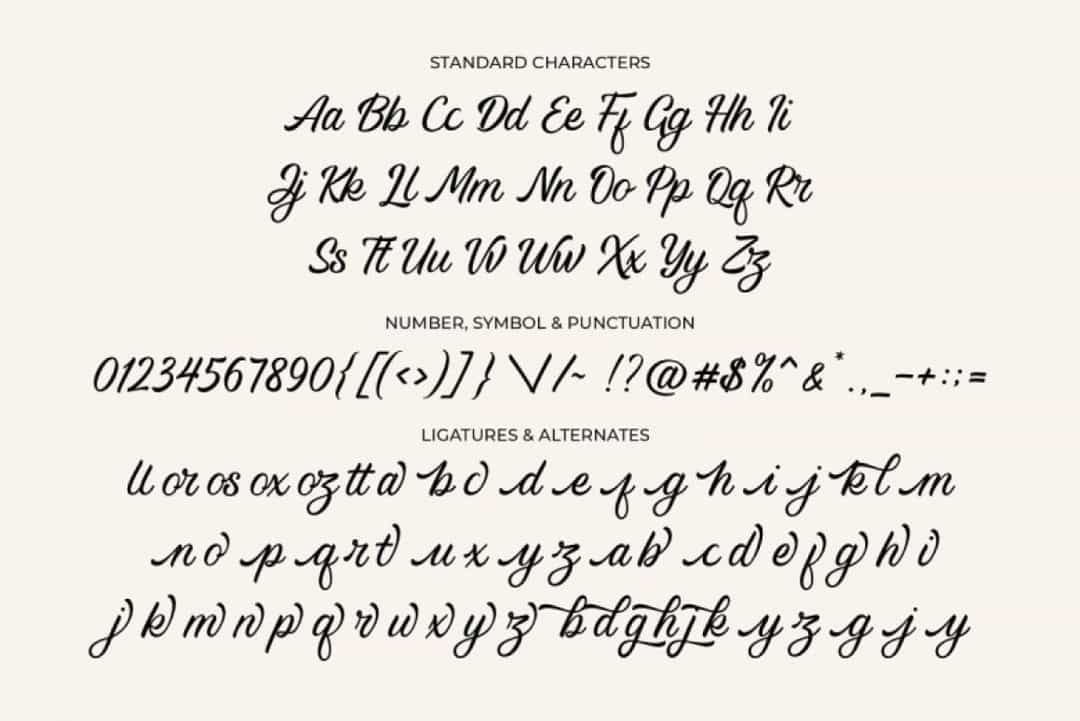 STANDARD CHARACTERS
Aa Bb Cc Dd Ee Ff Gg Hh Ii
Jj Kk Ll Mm Nn Oo Pp Qq Rr
Ss Tt Uu Vv Ww Xx Yy Zz
NUMBER, SYMBOL & PUNCTUATION
01234567890{[(<>)]}\|/~ !?@#$%^&*.,_-+:;=
LIGATURES & ALTERNATES
ll or os ox oz tt a b c d e f g h i j k l m
n o p q r t u x y z a b c d e f g h i
j k m n p q r u x y z b d g h j k y z g j y